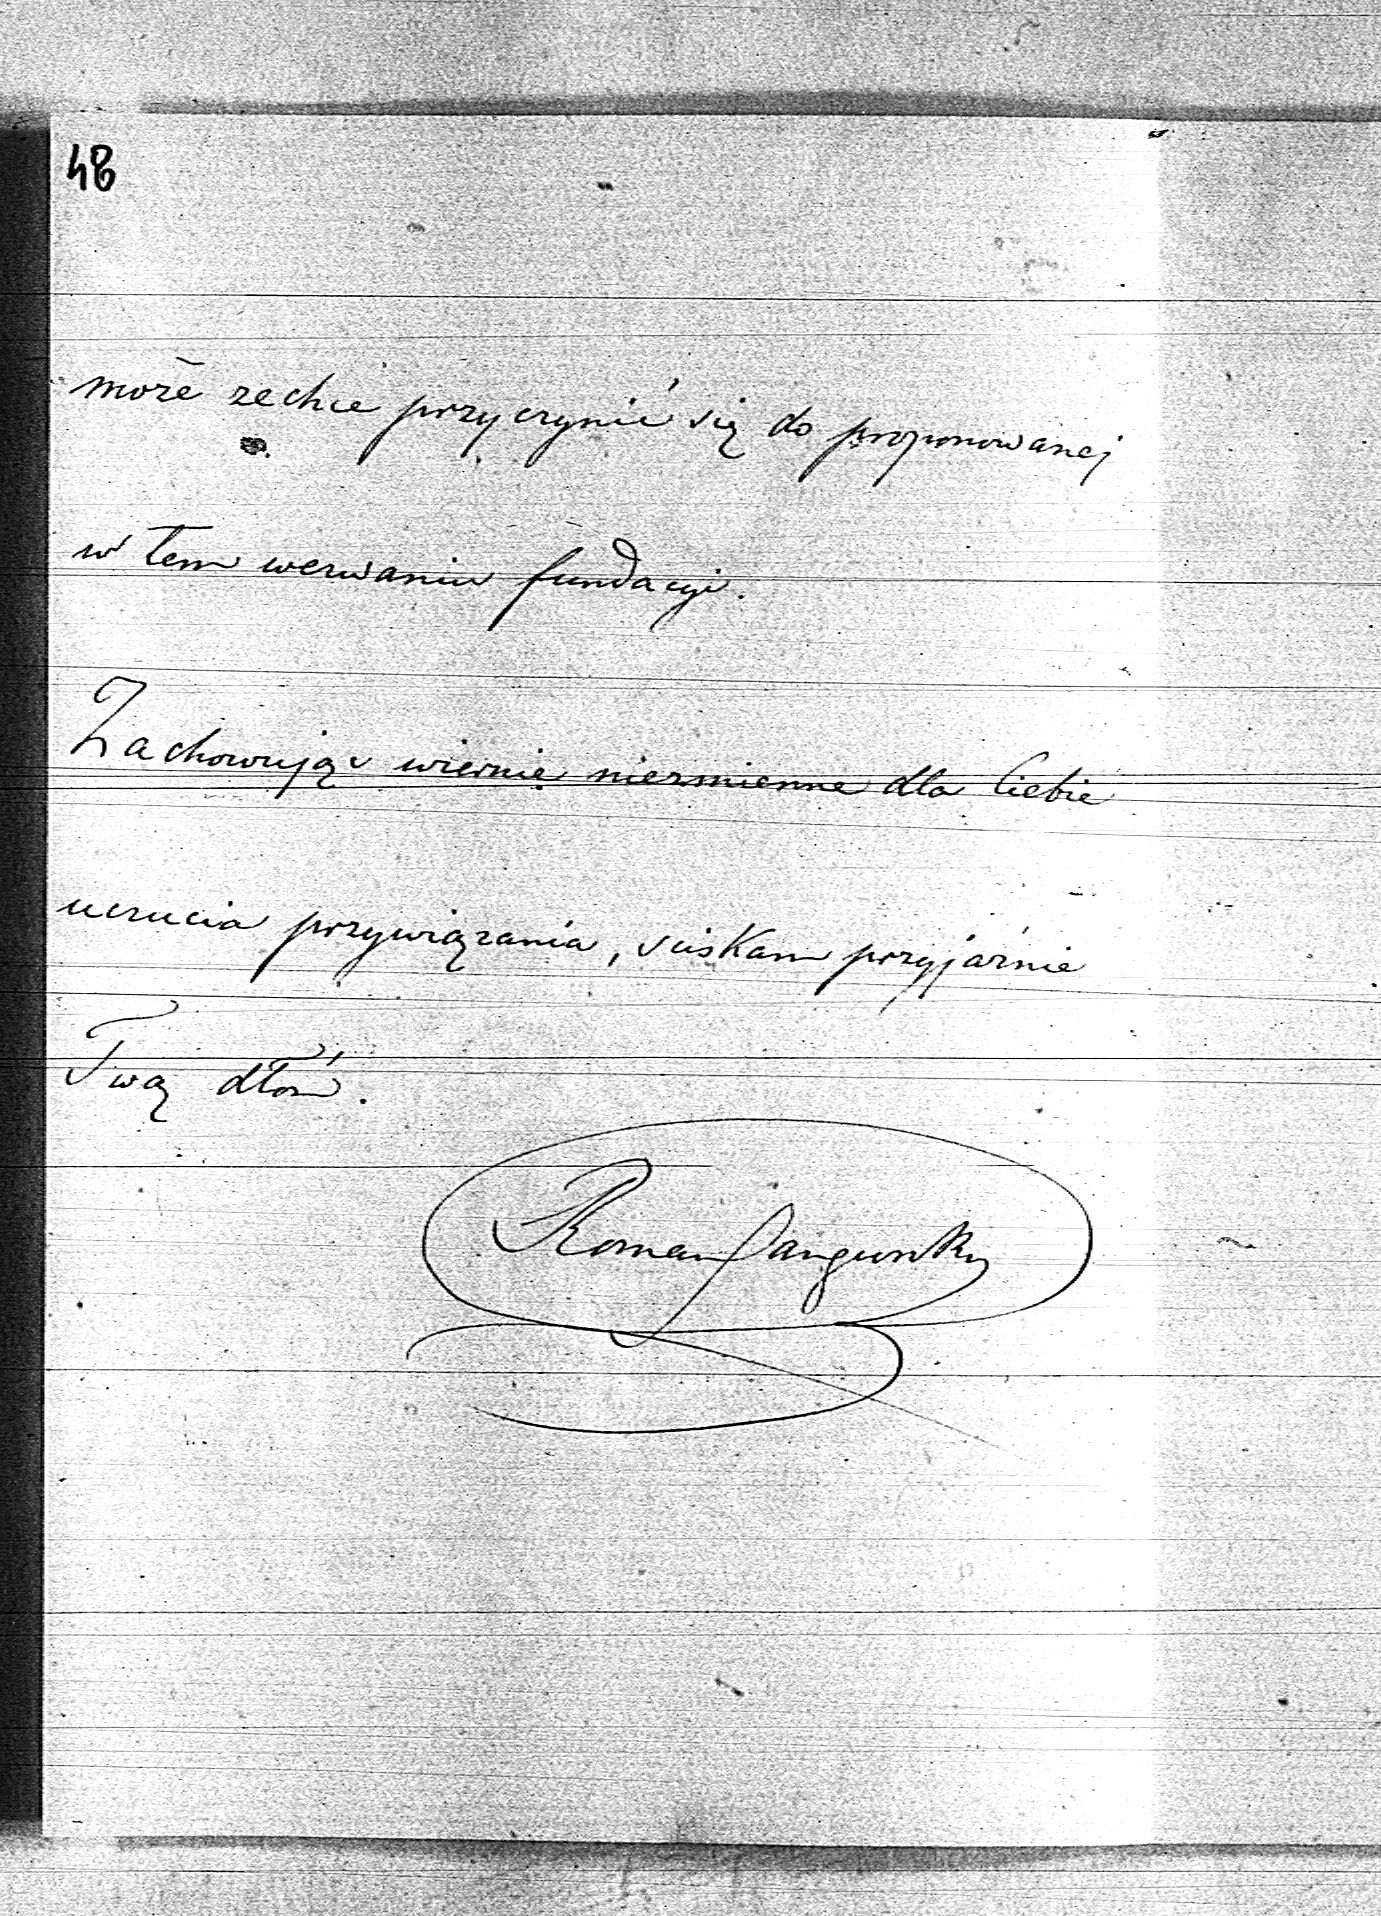 48
może zechce przyczynić się do proponowanej
w tem wezwaniu fundacyi.
Zachowując wiernie niezmienne dla Ciebie
uczucia przywiązania, ściskam przyjaźnie
Twą dłoń.
Roman Sanguszko